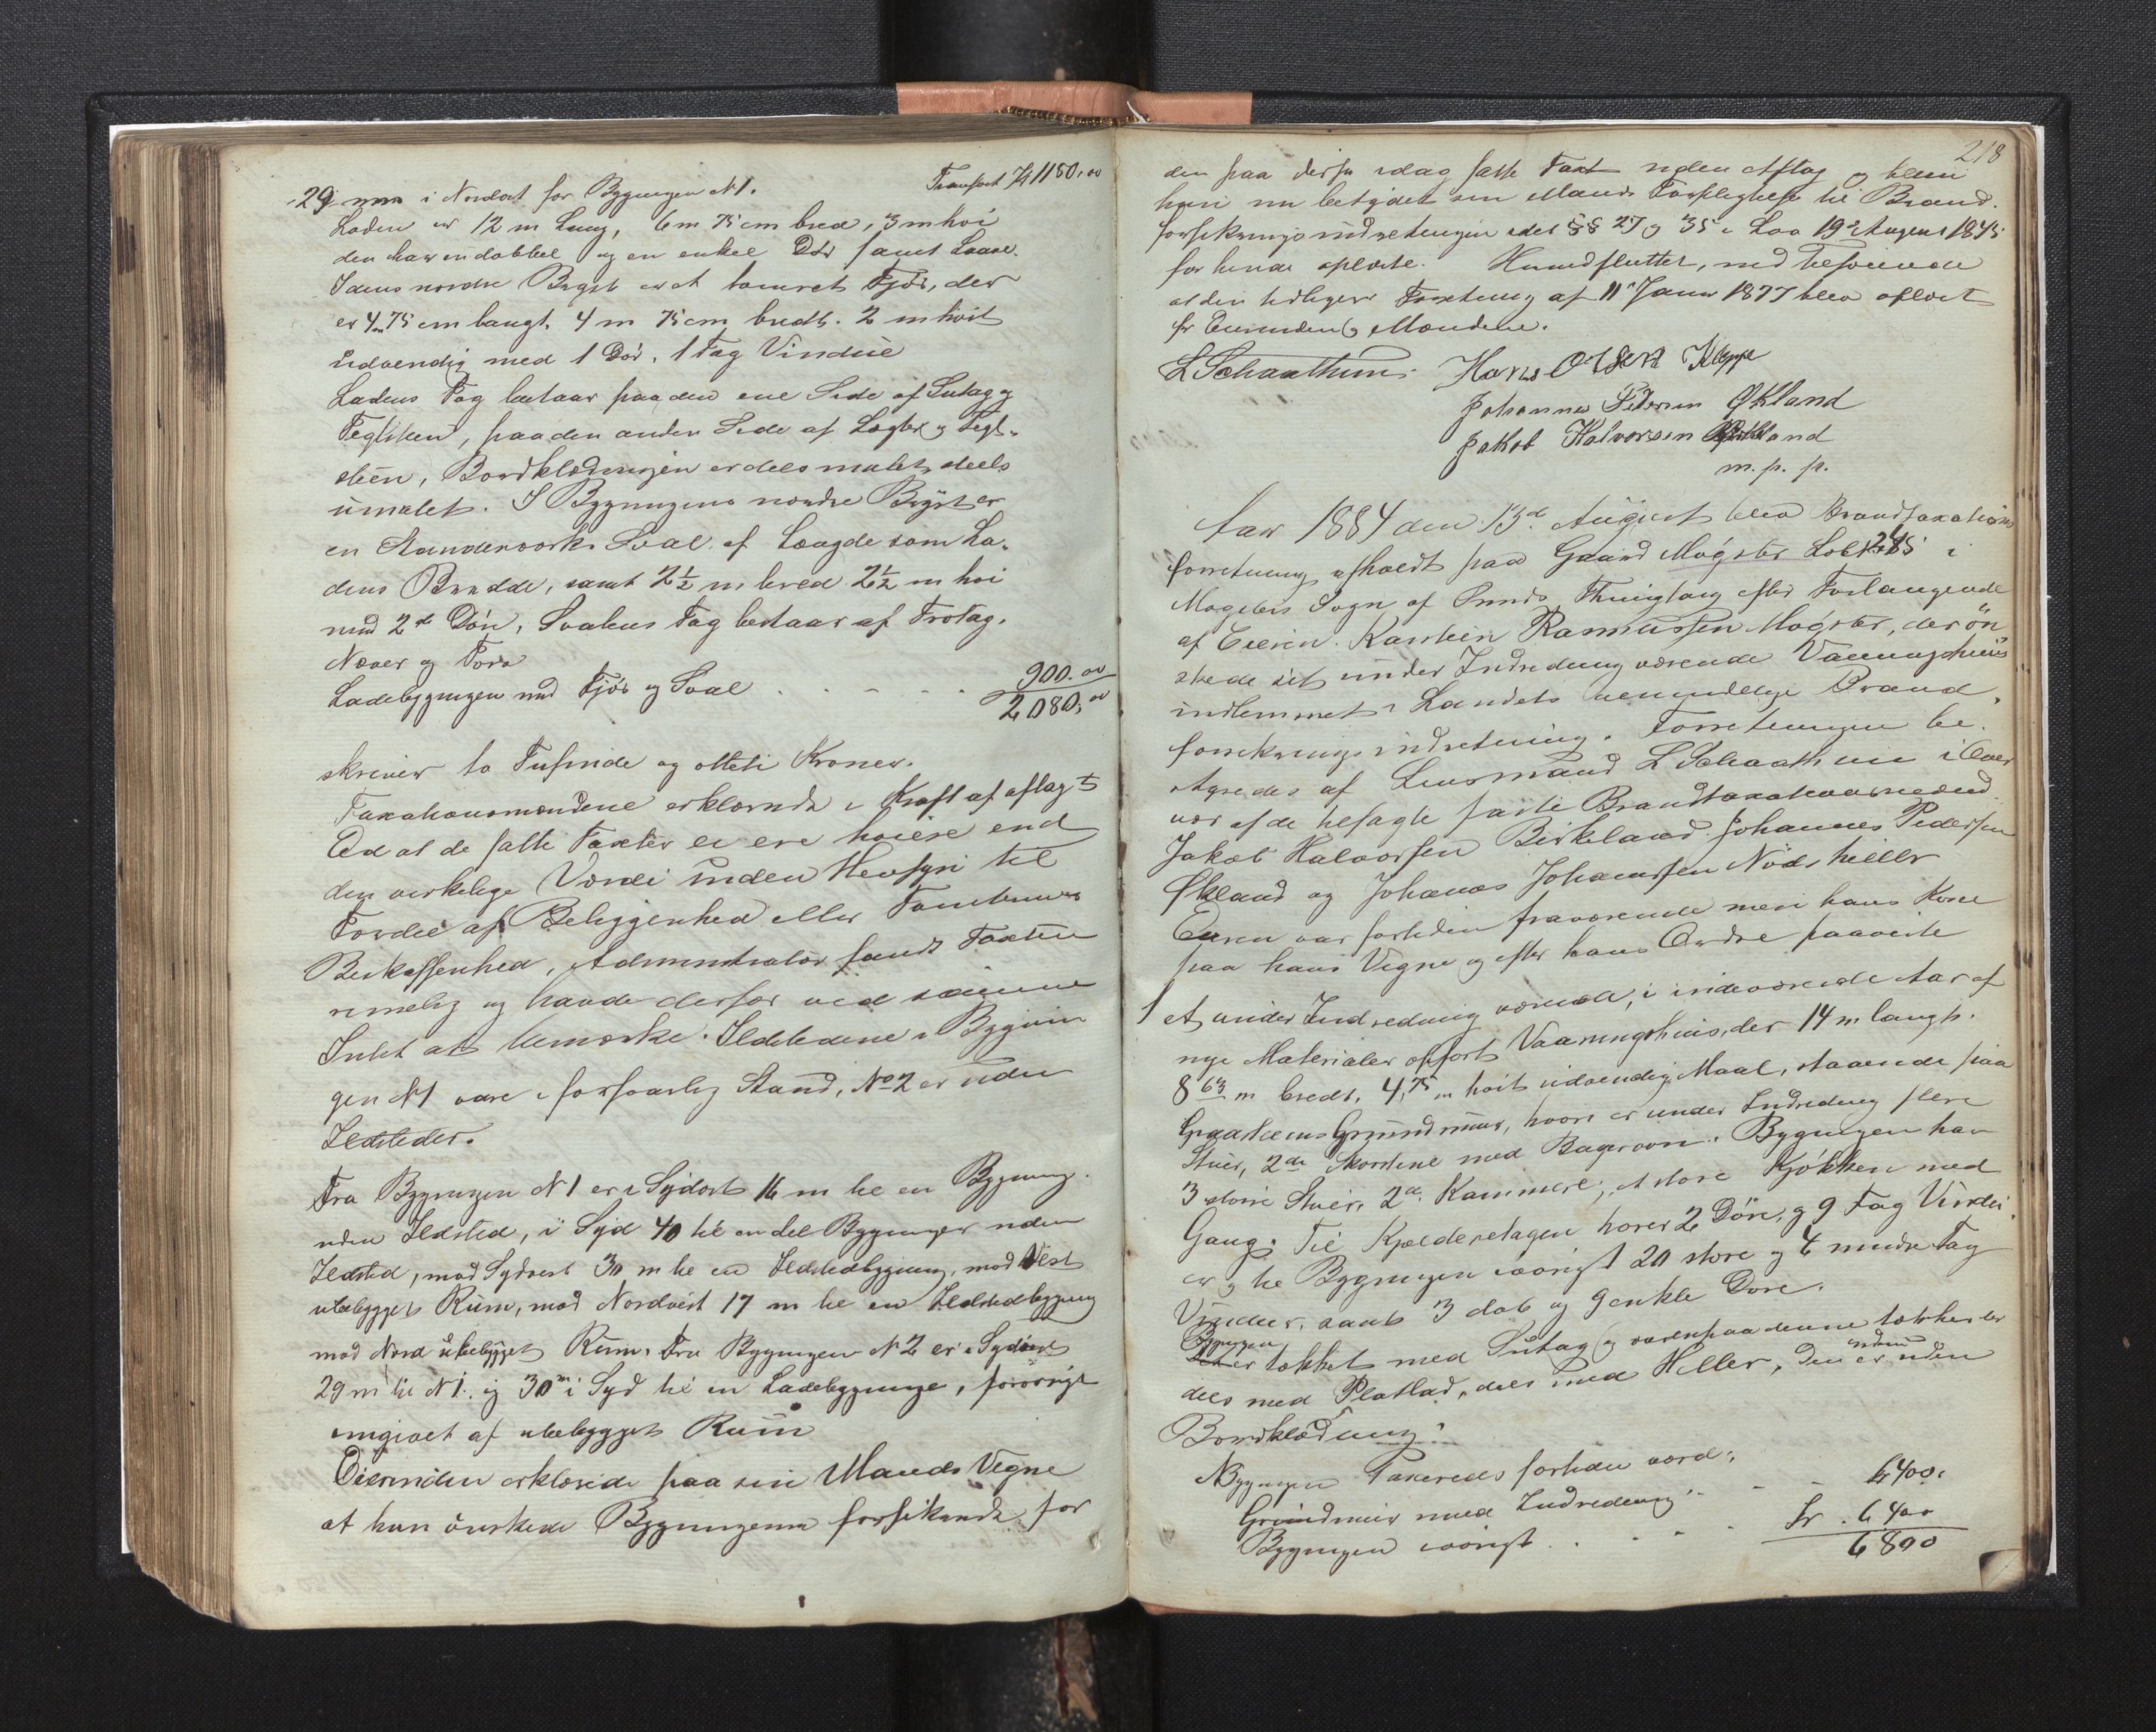 Transport Kr 1180,00
29 m i Nordost for Bygningen N1.
Laden er 12 m Lang, 6 m 75 cm bred, 3 m høi
den har en dobbel og en enkel Dør samt Laave.
I dens nordre Bryst er et tømret Fjøs, der
er 4 m 75 cm langt, 4 m 75 cm bredt. 2 m høit
udvendig med 1 Dør, 1 Fag Vindue
Ladens Tag bestaar paa den ene Side af Sutag og
Teglsten, paa den anden Side af Lægter og Tegl-
steen, Bordklædningen er dels malet, deels
umalet. I Bygningens nordre Bryst er
en Standerværks Sval af Længde som La-
dens Bredde, samt 2½ m bred 2½ m høi
med 2de Døre, Svalens Tag bestaar af Trotag,
Næver og Torv
Ladebygningen med Fjøs og Sval . . . 900.00
2080,00
skriver to Tusinde og otteti Kroner.
Taxationsmændene erklærede i Kraft af aflagt
Ed at de satte Taxter ei ere høiere end
den virkelige Værdi uden Hensyn til
Fordel af Beliggenhed eller Tomternes
Beskaffenhed, Administrator fandt Taxten
rimelig og havde derfor ved samme
Intet at bemærke. Ildstederne i Bygnin
gen N1 vare i forsvarlig Stand, No 2 er uden
Ildsteder.
Fra Bygningen N1 er i Sydost 16 m til en Bygning
uden Ildsted, i Syd 40 til en del Bygninger uden
Ildsted, mod Sydvest 30 m til en Ildstedbygning, mod Vest
ubebygget Rum, mod Nordvest 17 m til en Ildstedbygning
mod Nord ubebygget Rum. Fra Bygningen N2 er i Sydvest
29 m til N1. og 30 m i Syd til en Ladebygning, forøvrigt
omgivet af ubebygget Rum
Eierinden erklærede paa sin Mands Vegne
at hun ønskede Bygningerne forsikrede for
218
den paa disse idag satte Taxt uden Aftag og blev
hun nu betydet sin Mands Forpligtelse til Brand-
forsikringsindretningen idet §§ 27 og 35 i Lov 19de August 1845
for hende oplæste. Hermed sluttet, med Tilføiende
at den tidligere Forretning af 11te Januar 1877 blev oplæst
for Eierinden og Mændene.
L Schaathun. Hans Olsen Kleppe
Johannes Pedersen Økland
Jakob Halvorsen Birkeland
m. p. p.
Aar 1884 den 13de August blev Brandtaxations
forretning afholdt paa Gaard Møgster Løb No 245 i
Møgsters Sogn af Sunds Thinglag efter Forlangende
af Eieren Karsten Rasmussen Møgster, der øn
skede sit under Indredning værende Vaaningshuus
indlemmet i Landets almindelige Brand-
forsikringsindretning. Forretningen be-
styredes af Lensmand L Schaathun i Over
vær af de tilsagte faste Brandtaxationsmænd
Jakob Halvorsen Birkeland Johannes Pedersen
Økland og Johannes Johannessen
Eieren var fortiden fraværende men hans Kone
paa hans Vegne og efter hans Ordre paaviste
1 et under Indredning værende, i indeværende Aar af
nye Materialer opført Vaaningshuus, der 14 m langt.
8 63 m bredt, 4,75 m høit udvendig Maal, staaende paa
Graasteens Grundmuur, hvori er under Indredning flere
Stuer, 2de Skorstene med Bagerovn. Bygningen har
3 større Stuer, 2de Kammere, et store Kjøkken med
Gang. Til Kjælderetagen hører 2 Døre, og 9 Fag Vindu
er og til Bygningen iøvrigt 20 store og 4 mindre Fag
Vinduer, samt 3 dob og 9 enkle Døre.
Bygningen er tækket med Sutag og ovenpaa denne tækket er
dels med Platlad, dels med Heller, den er uden
Bordklædning.
Bygningen taxeredes fortiden værd:
Grundmuur med Indredning . . . kr 400.
Bygningen iøvrigt . . . kr. 6400
6800